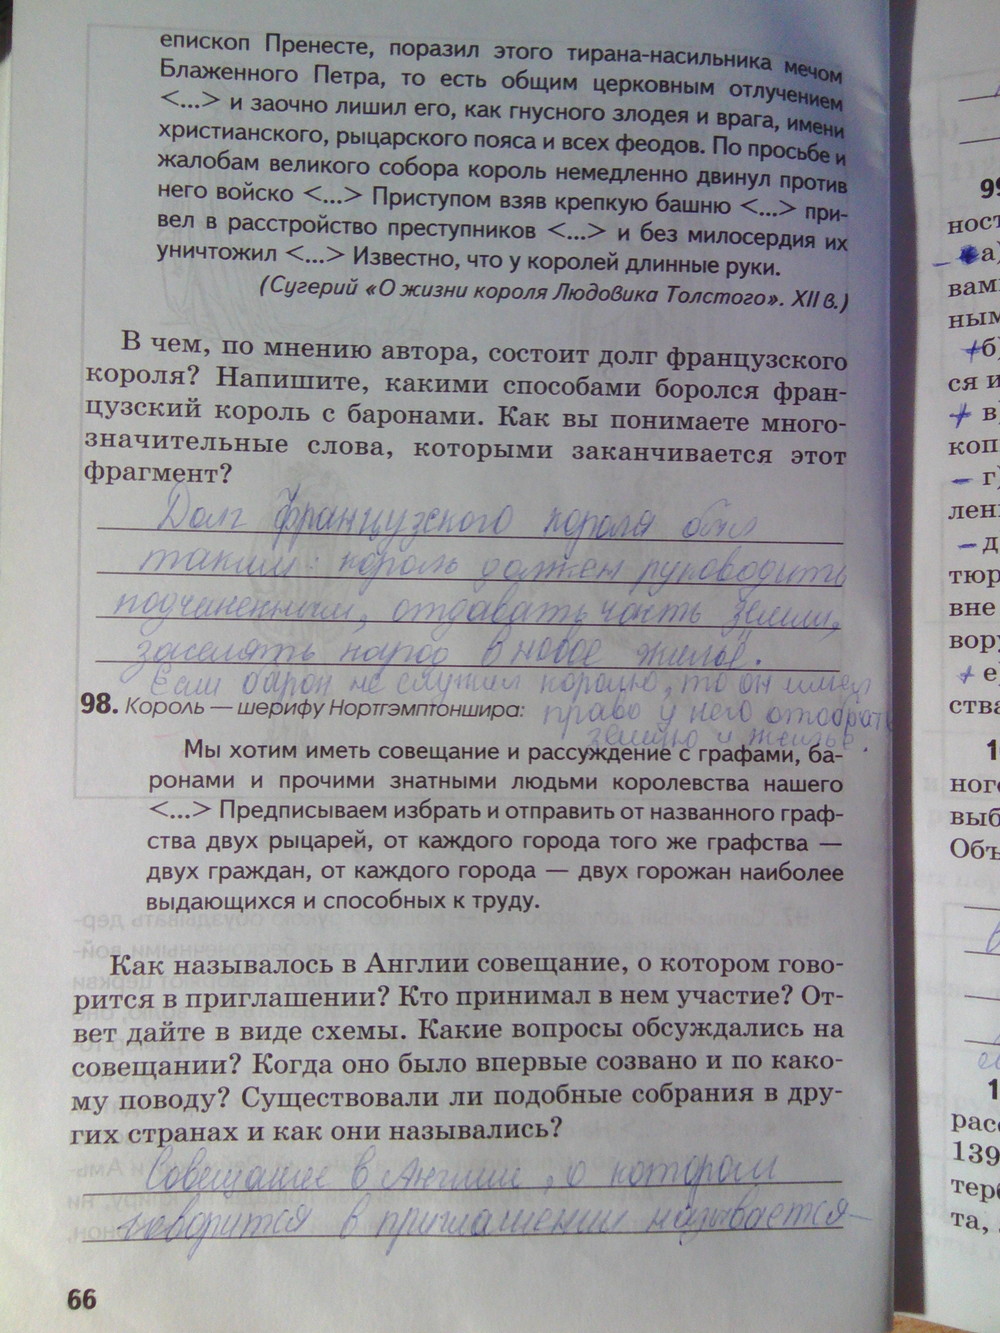 епископ Пренесте, поразил этого тирана-насильника мечом
Блаженного Петра, то есть общим церковным отлучением
<...> и заочно лишил его, как гнусного злодея и врага, имени
христианского, рыцарского пояса и всех феодов. По просьбе и
жалобам великого собора король немедленно двинул против
него войско <...> Приступом взяв крепкую башню <...> при-
вел в расстройство преступников <...> и без милосердия их
уничтожил <...> Известно, что у королей длинные руки.
(Сугерий «О жизни короля Людовика Толстого». XII в.)
В чем, по мнению автора, состоит долг французского
короля? Напишите, какими способами боролся фран-
цузский король с баронами. Как вы понимаете много-
значительные слова, которыми заканчивается этот
фрагмент?
Долг французского короля был
таким: король должен руководить
подчиненными, отдавать часть земли,
заселять народ в новое жильё.
Если барон не служил королю, то он имел
98. Король — шерифу Нортгэмптоншира: право у него отобрать
землю и жильё.
Мы хотим иметь совещание и рассуждение с графами, ба-
ронами и прочими знатными людьми королевства нашего
<...> Предписываем избрать и отправить от названного граф-
ства двух рыцарей, от каждого города того же графства —
двух граждан, от каждого города — двух горожан наиболее
выдающихся и способных к труду.
Как называлось в Англии совещание, о котором гово-
рится в приглашении? Кто принимал в нем участие? От-
вет дайте в виде схемы. Какие вопросы обсуждались на
совещании? Когда оно было впервые созвано и по како-
му поводу? Существовали ли подобные собрания в дру-
гих странах и как они назывались?
Совещание в Англии, о котором
говорится в приглашении называется
66
99
ност
а)
вам
ным
б)
ся и
в)
коп
г)
лен
д
тюр
вне
вору
е)
ства
1
ного
выб
Объ
1
расс
139
тер
та,